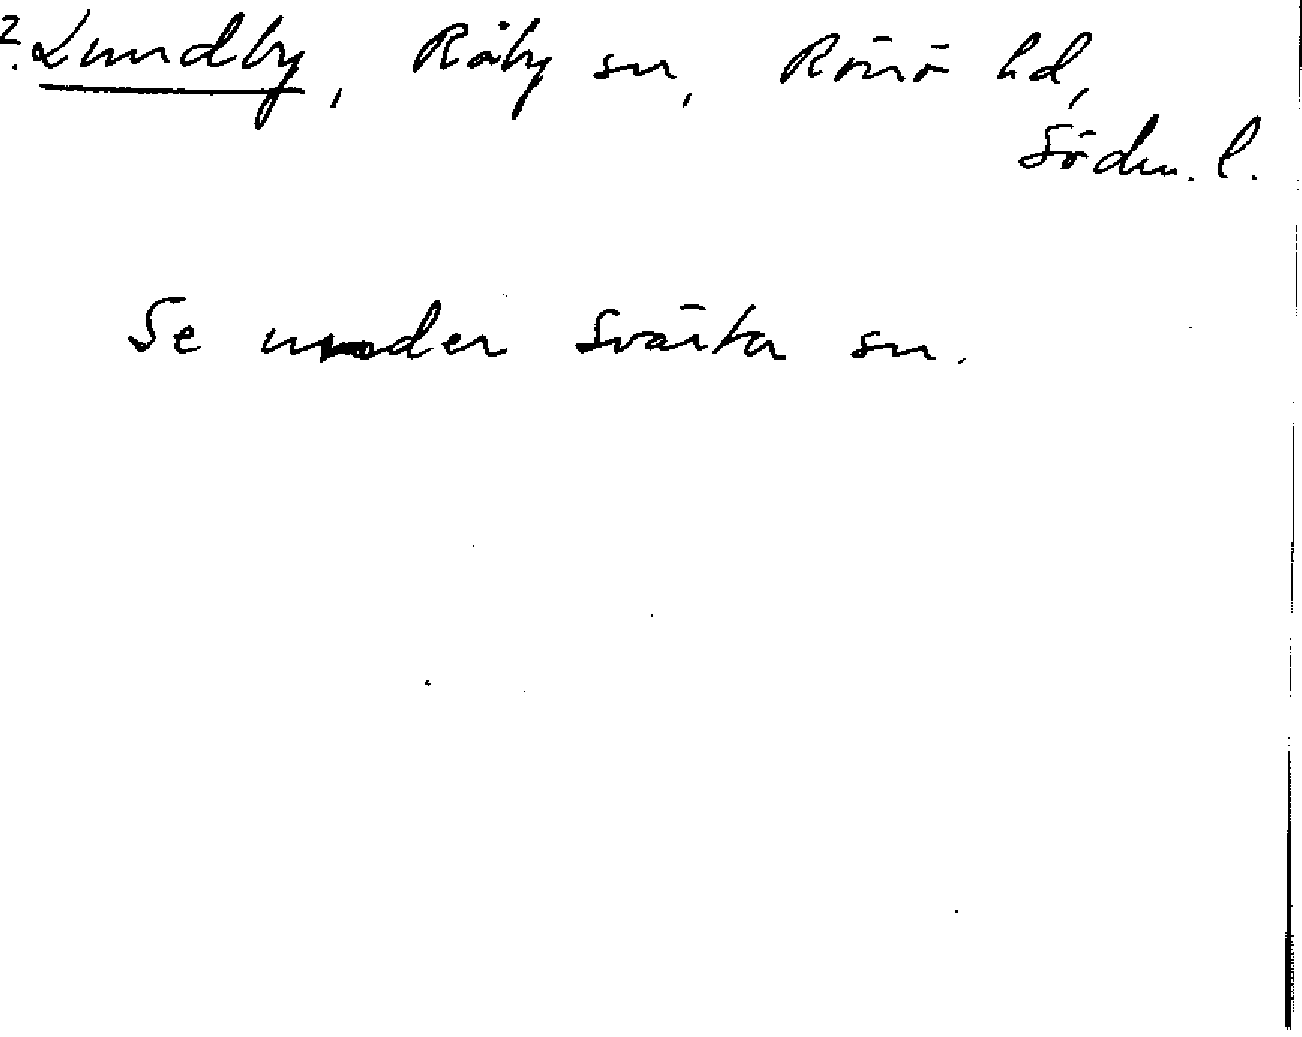 2. Lundby, Råby sn, Rönö hd,
Södm. l.
Se under Svärta sn.